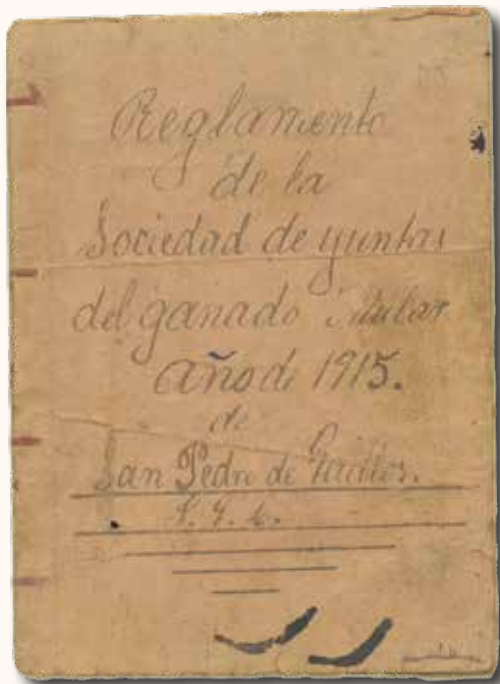 Reglamento
de la
Sociedad de yuntas
del ganado
año de 1915.
de
San Pedro de Gaillos.